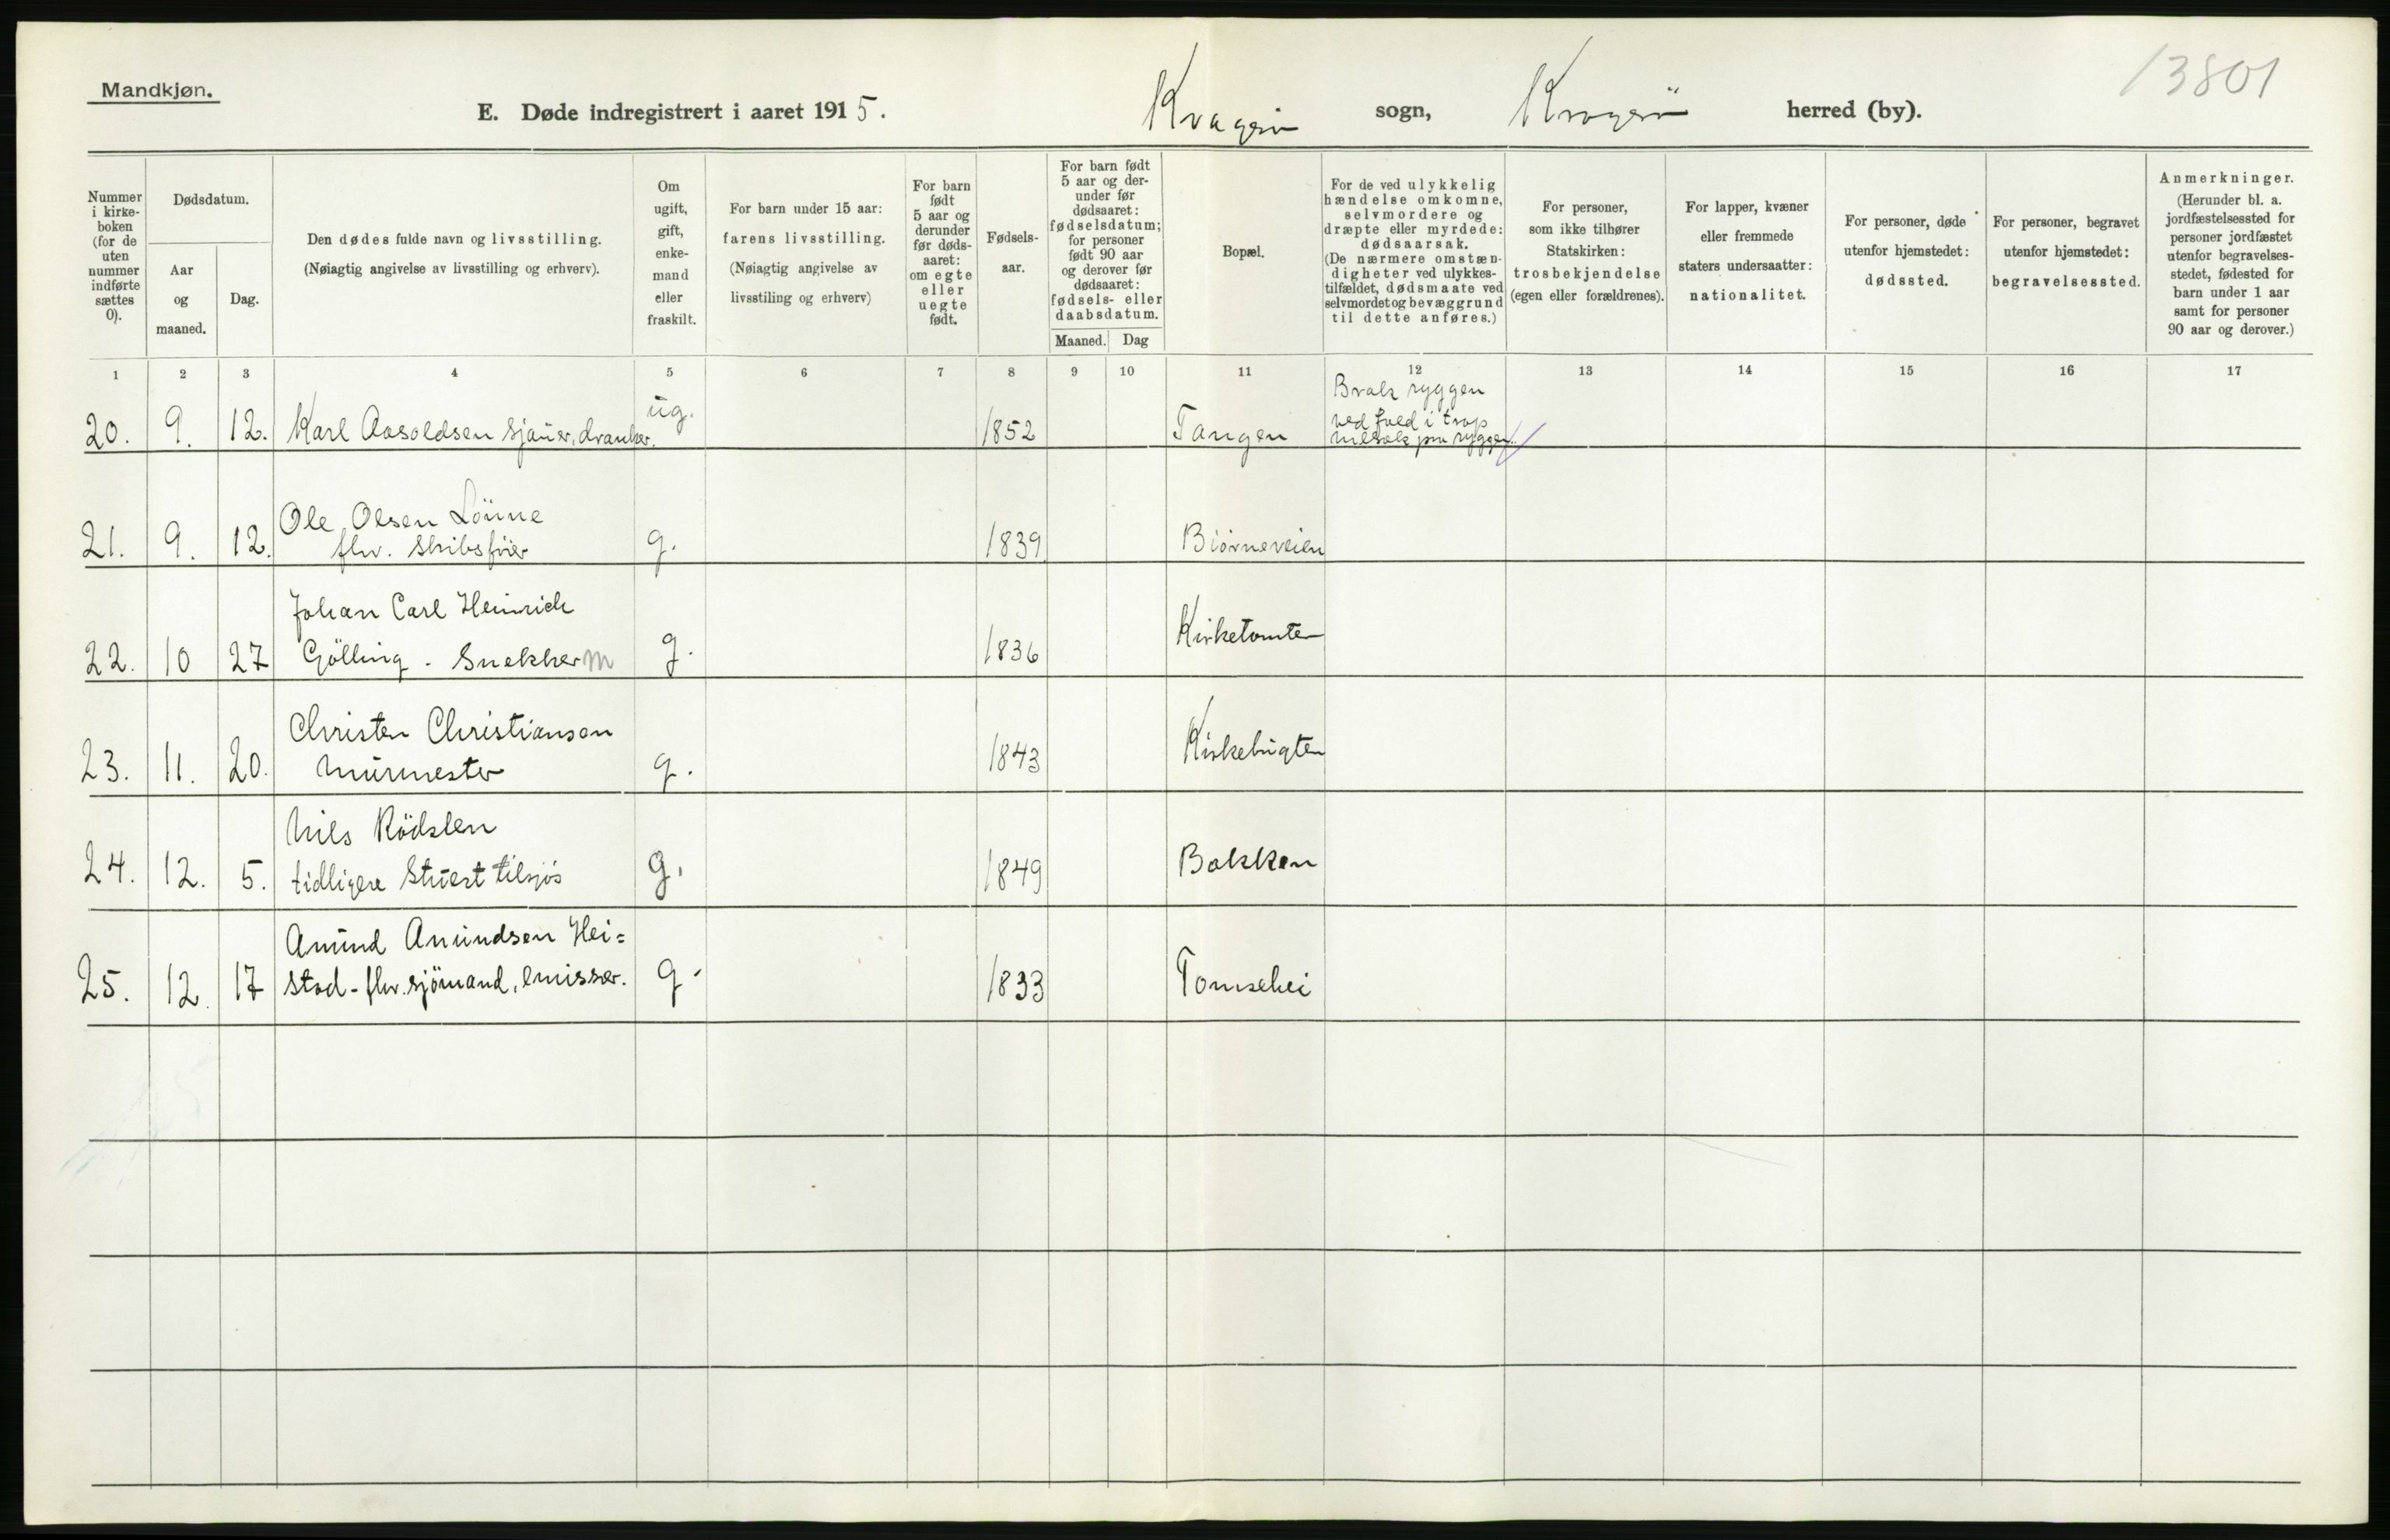 Mandkjøn.
E. Døde indregistrert i aaret 1915.
Kragerö sogn, Kragerö herred (by).
13801
Nummer i kirke-boken (for de uten nummer indførte sættes 0).
Dødsdatum.
Aar og maaned.
Dag.
Den dødes fulde navn og livsstilling.
(Nøiagtig angivelse av livsstilling og erhverv).
Om ugift, gift, enke-mand eller fraskilt.
For barn under 15 aar:
farens livsstilling.
(Nøiagtig angivelse av livsstiling og erhverv)
For barn født 5 aar og derunder før døds-aaret: om egte eller uegte født.
Fødsels-aar.
For barn født 5 aar og der-under før dødsaaret: fødselsdatum; for personer født 90 aar og derover før dødsaaret: fødsels- eller daabsdatum.
Maaned. Dag
Bopæl.
For de ved ulykkelig hændelse omkomne, selvmordere og dræpte eller myrdede: dødsaarsak.
(De nærmere omstæn-digheter ved ulykkes-tilfældet, dødsmaate ved selvmordet og bevæggrund til dette anføres.)
For personer, som ikke tilhører Statskirken: trosbekjendelse (egen eller forældrenes).
For lapper, kvæner eller fremmede staters undersaatter: nationalitet.
For personer, døde utenfor hjemstedet: dødssted.
For personer, begravet utenfor hjemstedet: begravelsessted.
Anmerkninger.
(Herunder bl. a. jordfæstelsessted for personer jordfæstet utenfor begravelses-stedet, fødested for barn under 1 aar samt for personer 90 aar og derover.)
1 2 3 4 5 6 7 8 9 10 11 12 13 14 15 16 17
20. 9. 12. Karl Aasoldsen sjauer, dranker. ug. 1852 Tangen
Brak ryggen
ved fald i trap
melsæk paa ryggen.
21. 9. 12. Ole Olsen Lönne
flv. Skibsfører g. 1839 Biörneveien
22. 10 27 Johan Carl Heinrich
Gölling. Snekker m g. 1836 Kirketomten
23. 11. 20. Christen Christiansen
Murmester g. 1843 Kirkebugten
24. 12. 5. Nils Rödslen
tidligere Stuert tilsjös g. 1849 Bakken
25. 12. 17 Anund Anundsen Hei=
stad - flv. sjömand, emissær. g. 1833 Tomsehei